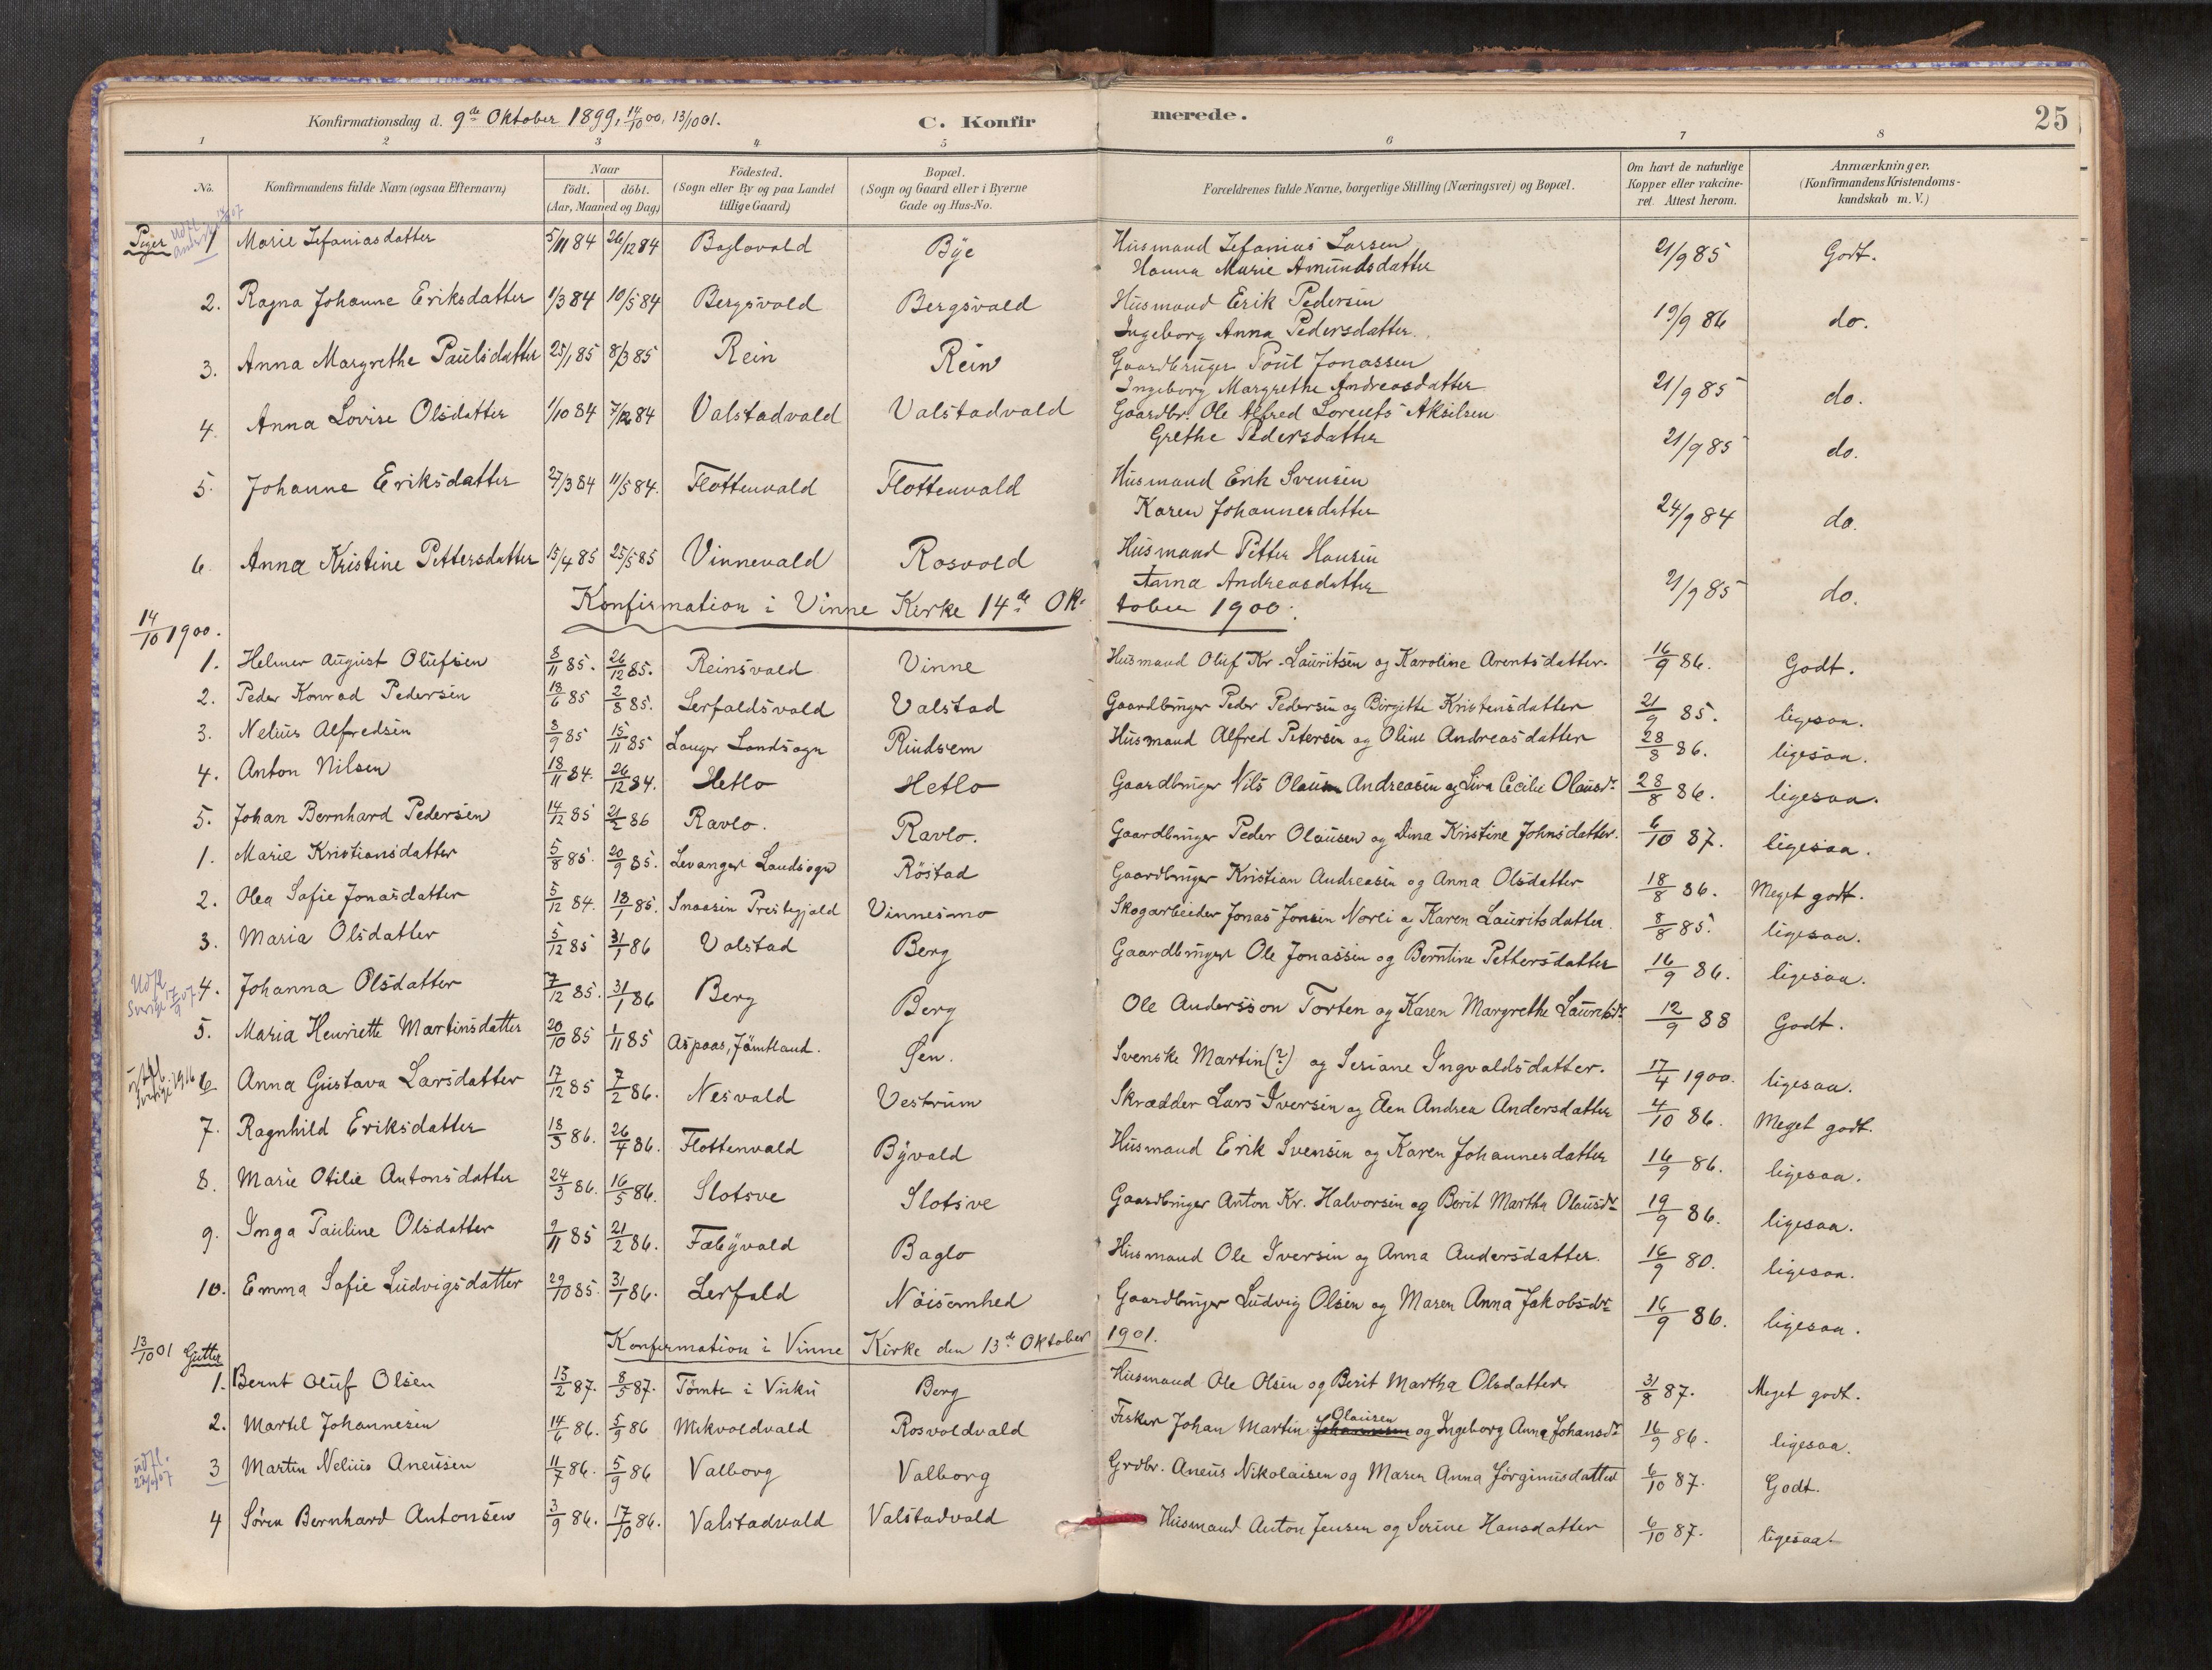 Konfirmationsdag d. 9de Oktober 1899, 14/10 00, 13/10 01. C. Konfirmerede. 25
1 2 3 4 5 6 7 8
No. Konfirmandens fulde Navn (ogsaa Efternavn) Naar födt. döbt. (Aar, Maaned og Dag) Födested. (Sogn eller By og paa Landet tillige Gaard) Bopæl. (Sogn og Gaard eller i Byerne Gade og Hus-No. Forældrenes fulde Navne, borgerlige Stilling (Næringsvei) og Bopæl. Om havt de naturlige Kopper eller vakcineret. Attest herom. Anmærkninger. (Konfirmandens Kristendomskundskab m. V.)
Piger 1 Marie Zefaniasdatter 5/11 84 26/12 84 Baglovald Bÿe Husmand Zefanias Larsen Hanna Marie Amundsdatter 21/9 85 Godt.
2. Ragna Johanne Eriksdatter 1/3 84 10/5 84 Bergsvald Bergsvald Husmand Erik Pedersen Ingeborg Anna Pedersdatter 19/9 86 do.
3. Anna Margrethe Paulsdatter 25/1 85 8/3 85 Rein Rein Gaardbruger Poul Jonassen Ingeborg Margrethe Andreasdatter 21/9 85 do.
4. Anna Lovise Olsdatter 1/10 84 7/12 84 Valstadvald Valstadvald Gaardbr. Ole Alfred Lorents Akselsen Grethe Pedersdatter 21/9 85 do.
5. Johanne Eriksdatter 27/3 84 11/5 84. Flottenvald Flottenvald Husmand Erik Svensen Karen Johannesdatter 24/9 84 do.
6. Anna Kristine Pettersdatter 15/4 85 25/5 85 Vinnevald Rosvold Husmand Petter Hansen Anna Andreasdatter 21/9 85 do.
Konfirmation i Vinne Kirke 14de Oktober 1900.
14/10 1900.
1. Helmer August Olufsen 8/11 85. 26/12 85. Reinsvald Vinne Husmand Oluf Kr. Lauritsen og Karoline Arentsdatter. 16/9 86. Godt.
2. Peder Konrad Pedersen 18/6 85 2/8 85. Lerfaldsvald Valstad Gaardbruger Peder Pedersen og Birgitte Kristensdatter 21/9 85. ligesaa.
3. Nelius Alfredsen 8/9 85 15/11 85 Landsogn Rindsem Husmand Alfred Petersen og Oline Andreasdatter 28/8 86. ligesaa.
4. Anton Nilsen 18/11 84. 26/12 84. Hetlo Hetlo Gaardbruger Nils Olaus Andreasen og Cecilie Olausdr 28/8 86. ligesaa.
5. Johan Bernhard Pedersen 14/12 85 21/2 86 Ravlo. Ravlo. Gaardbruger Peder Olausen og Dina Kristine Johnsdatter. 6/10 87. ligesaa.
1. Marie Kristiansdatter 5/8 85. 20/9 85. Levanger Landsogn Röstad Gaardbruger Kristian Andreasen og Anna Olsdatter 18/8 86. Meget godt.
2. Olea Sofie Jonasdatter 5/12 84. 18/1 85. Snaasen Prestegjald Vinnesmo Skogarbeider Jonas Jonsen Norli og Karen Lauritsdatter. 8/8 85. ligesaa.
3. Maria Olsdatter 5/12 85 31/1 86 Valstad Berg Gaardbruger Ole Jonassen og Berntine Pettersdatter 16/9 86. ligesaa.
Udfl. Sverige 17/9 07 4. Johanna Olsdatter 7/12 85. 31/1 86 Berg Berg Ole Andersson Torten og Karen Margrethe Lauritsdr. 12/9 88 Godt.
5. Maria Henriette Martinsdatter 20/10 85 1/11 85 Aspaas, Jämtland. Gen. Svenske Martin (?) og Seriane Ingvaldsdatter. 17/4 1900. ligesaa.
Sverige 1916 6 Anna Gustava Larsdatter 17/12 85 7/2 86. Nesvald Vestrum Skrædder Lars Iversen og Elen Andrea Andersdatter 4/10 86. Meget godt.
7. Ragnhild Eriksdatter 18/3 86. 26/4 86. Flottenvald Bÿvald Husmand Erik Svensen og Karen Johannesdatter 16/9 86. ligesaa.
8. Marie Otilie Antonsdatter 24/3 86. 16/5 86. Slotsve Slotsve Gaardbruger Anton Kr. Halvorsen og Berit Martha Olausdr 19/9 86. ligesaa.
9. Inga Pauline Olsdatter 9/11 85 21/2 86. Fæbÿvald Baglo Husmand Ole Iversen og Anna Andersdatter. 16/9 80. ligesaa.
10. Emma Sofie Ludvigsdatter 29/10 85. 31/1 86. Lerfald Nöisomhed Gaardbruger Ludvig Olsen og Maren Anna Jakobsdr 16/9 86. ligesaa.
13/10 01 Gutter Konfirmation i Vinne Kirke den 13de Oktober 1901.
1. Bernt Oluf Olsen 13/2 87. 8/5 87. Tömte i Vuku Berg Husmand Ole Olsen og Berit Martha Olsdatter. 31/8 87. Meget godt.
2. Martel Johannesen 14/6 86. 5/9 86 Mikvoldvald Rosvoldvald Fisker Johan Martin Olausen og Ingeborg Anna Johansdr 16/9 86. ligesaa.
udfl. 3 Martin Nelius Aneusen 11/7 86. 5/9 86 Valborg Valborg Grdbr. Aneus Nikolaisen og Maren Anna Jørginusdatter 6/10 87. Godt.
4 Sören Bernhard Antonsen 3/9 86. 17/10 86. Valstadvald Valstadvald Husmand Anton Jensen og Serine Hansdatter 6/10 87. ligesaa.